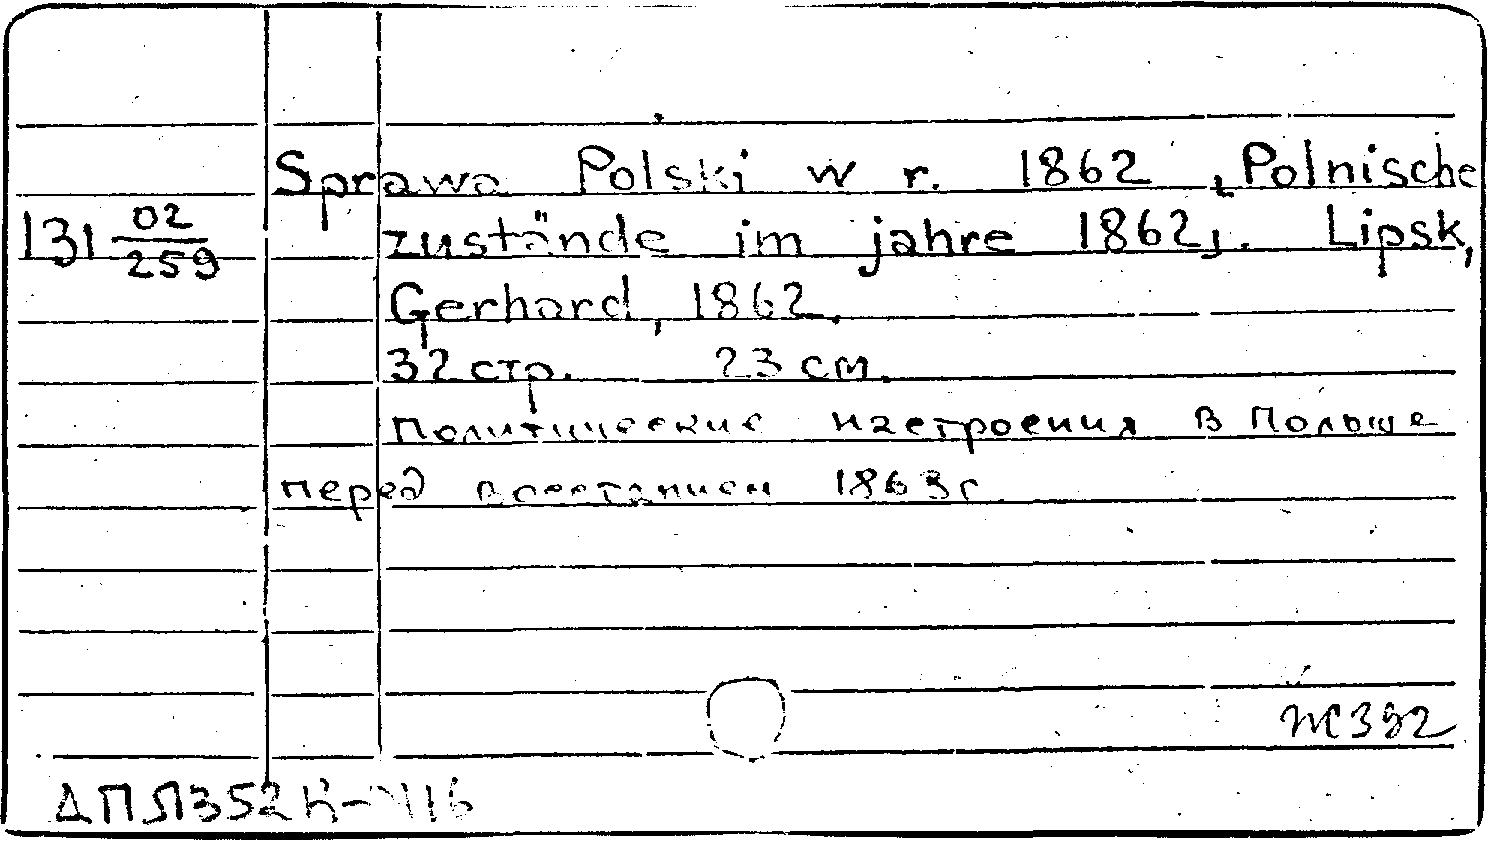 Sprawa Polski w r. 1862 [Polnische
131 02/259 zustände im jahre 1862]. Lipsk,
Gerhard, 1862.
32 стр. 23 см.
Политические настроения в Польше
перед восстанием 1863 г
ЖЗ92